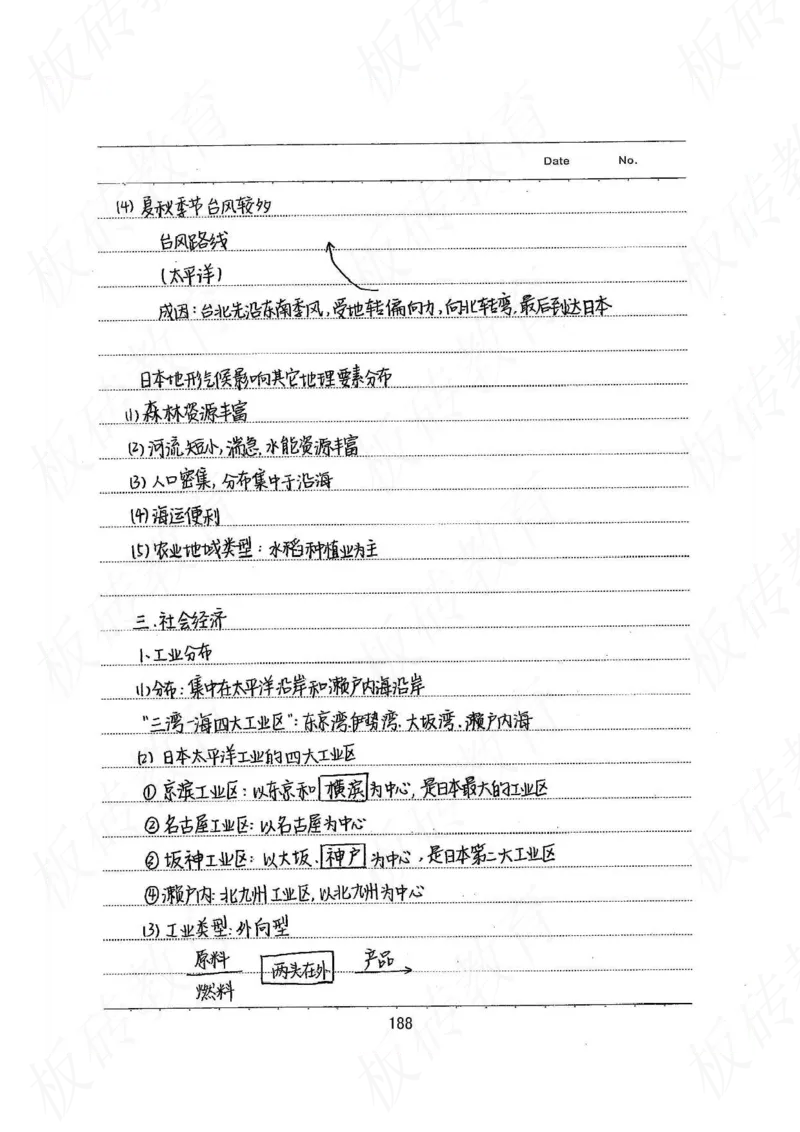 Date No.
(4) 夏秋季节台风较多
台风路线
(太平洋)
成因:台北先沿东南季风,受地转偏向力,向北转弯,最后到达日本
日本地形气候影响其它地理要素分布
(1) 森林资源丰富
(2) 河流短小,湍急,水能资源丰富
(3) 人口密集,分布集中于沿海
(4) 海运便利
(5) 农业地域类型:水稻种植业为主
三.社会经济
1.工业分布
(1) 分布:集中在太平洋沿岸和濑户内海沿岸
"三湾一海四大工业区":东京湾.伊势湾.大坂湾.濑户内海
(2) 日本太平洋工业的四大工业区
① 京滨工业区:以东京和横滨为中心,是日本最大的工业区
② 名古屋工业区:以名古屋为中心
③ 坂神工业区:以大坂.神户为中心,是日本第二大工业区
④ 濑户内:北九州工业区,以北九州为中心
(3) 工业类型:外向型
原料 两头在外 产品
燃料
188
板砖教育